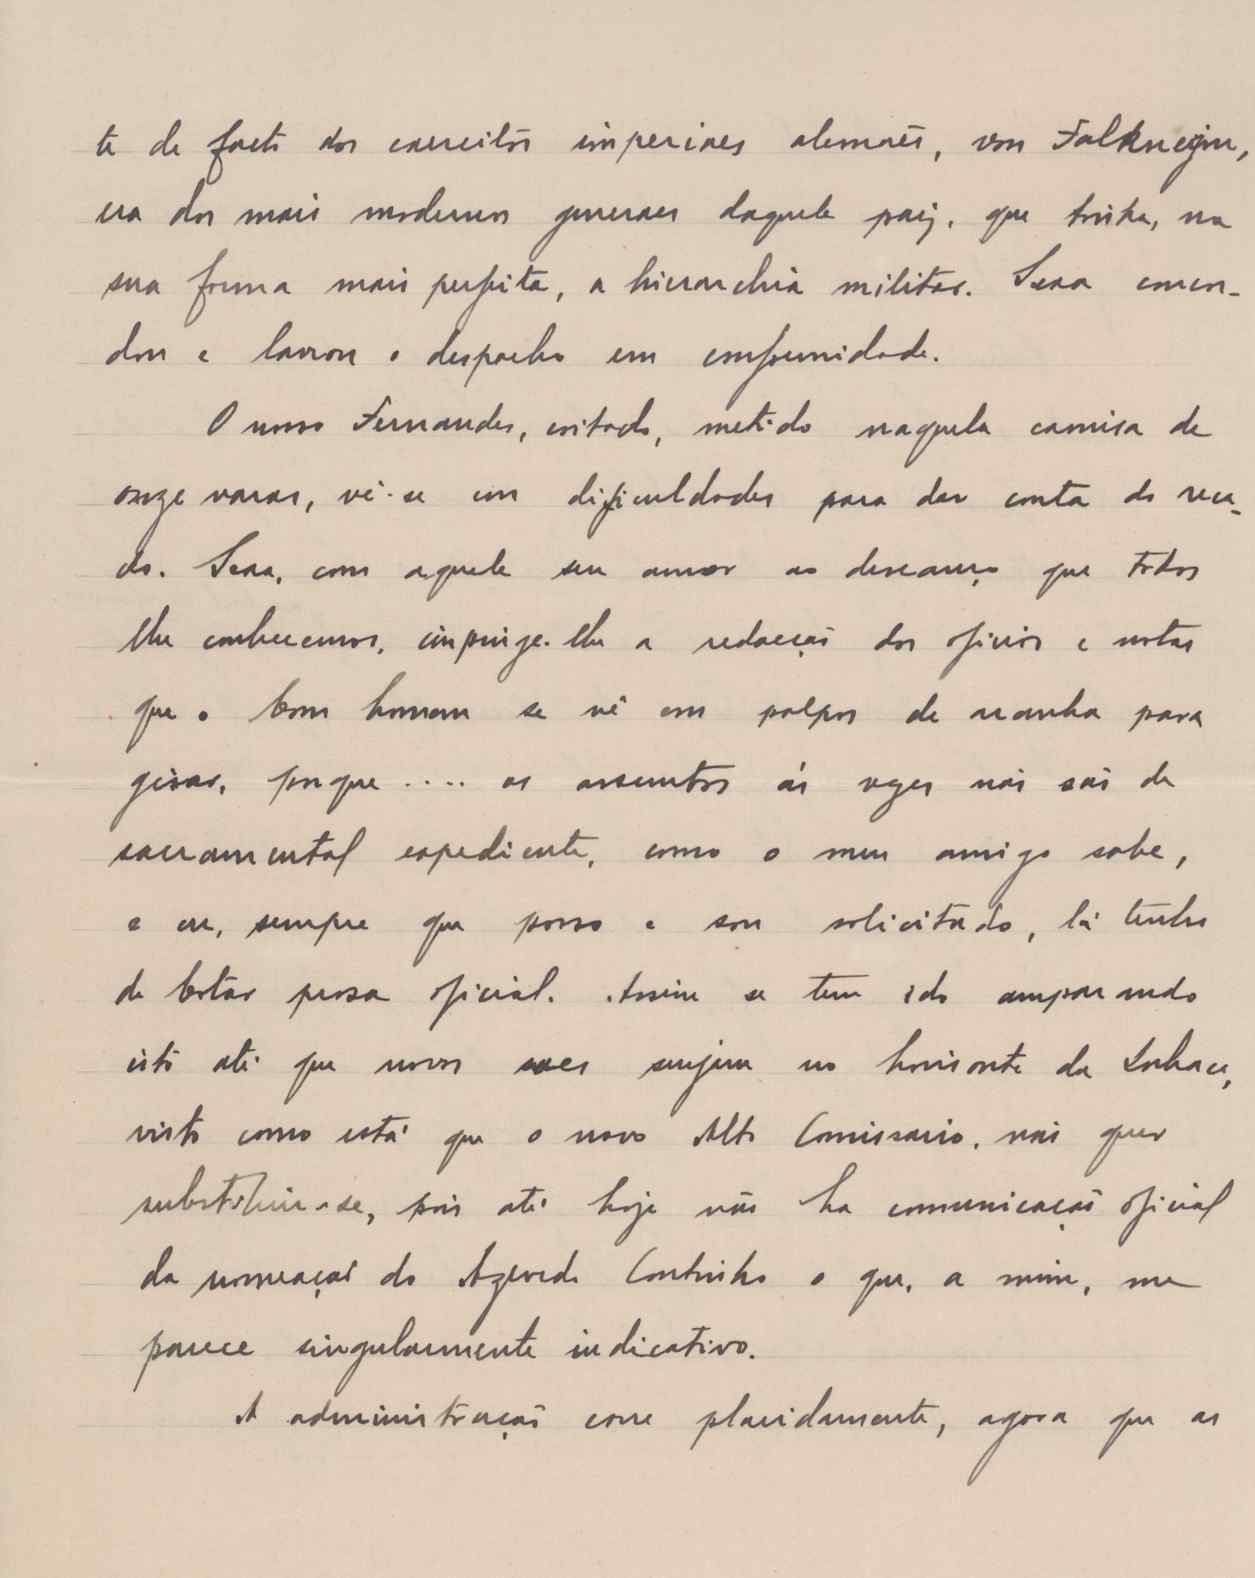 te de facto dos exercitos imperiaes alemães, von Falkneijm,
era dos mais modernos generaes daquele paiz, que tinha, na
sua forma mais perfeita, a hierarchia militar. Seara concor-
dou e lavrou o despacho em conformidade.
O nosso Fernandes, coitado, metido naquela camisa de
onze varas, vê-se em dificuldades para dar conta do reca-
do. Seara, com aquele seu amor ao descanço que todos
lhe conhecemos, impinge-lhe a redacção dos oficios e notas
que o bom homem se vê em palpos de aranha para
gisar, porque .... os assuntos ás vezes não são de
sacramental expediente, como o meu amigo sabe,
e eu, sempre que posso e sou solicitado, lá tenho
de botar prosa oficial. Assim se tem ido amparando
isto até que novos soes surjam no horisonte da
visto como está que o novo Alto Comissario, não quer
substituir-se, pois até hoje não ha comunicação oficial
da nomeação do Azevedo Coutinho o que, a mim, me
parece singularmente indicativo.
A administração corre placidamente, agora que as